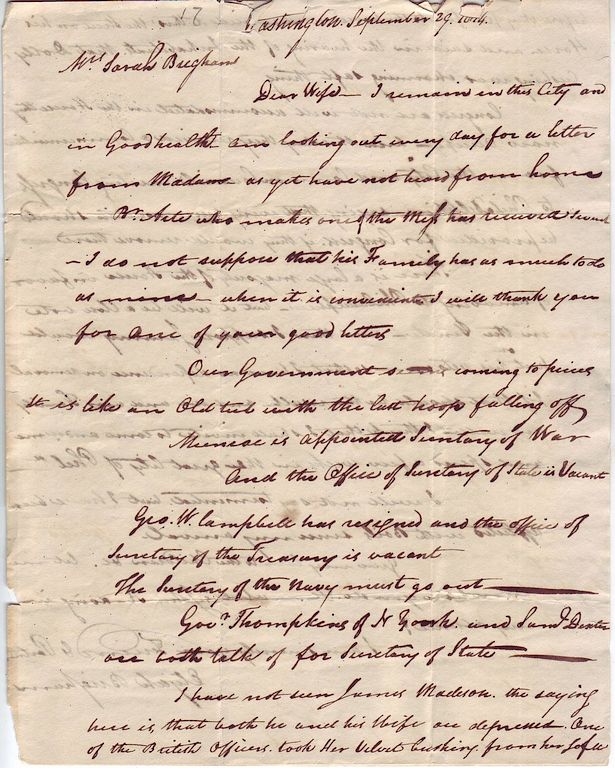 Washington. September 29. 1814.
Mrs Sarah Brigham
Dear Wife – I remain in this City and
in Good health am looking out every day for a letter
from Madam – as yet have not heard from home
who makes one of the Mess has recieved several
– I do not suppose that his Family has as much to do
as mine – when it is convenient I will thank you
for one of your good letters
Our Government coming to pieces
It is like an Old tub with the last hoop falling off,
Munroe is appointed Secretary of War
And the Office of Secretary of State is Vacant
Geo. W. Campbell has resigned and the office of
Secretary of the Treasury is vacant
The Secretary of the Navy must go out —
Govr Thompkins of N York. and Saml. Dexter
are both talk of for Secretary of State —
I have not seen James Madeson. the saying
here is, that both he and his Wife are depressed. One
of the British Officers. took Her Velvet Cushing from her Sofa